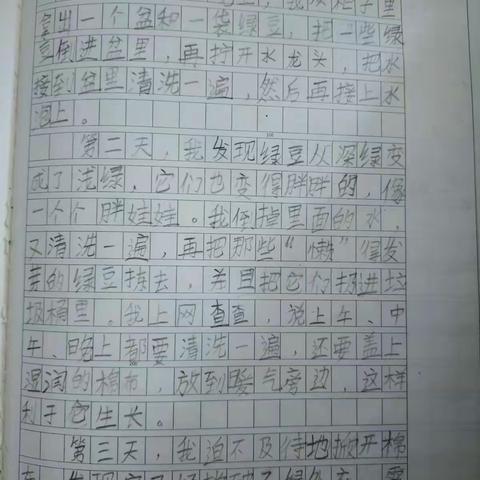 拿出一个盆和一袋绿豆，把一些绿
豆倒进盆里，再拧开水龙头，把水
接到盆里清洗一遍，然后再接上水
泡上。
第二天，我发现绿豆从深绿变
成了浅绿，它们也变得胖胖的，像
一个个胖娃娃。我倒掉里面的水，
又清洗一遍，再把那些“懒”得发
芽的绿豆拣去，并且把它们扔进垃
圾桶里。我上网查查，说上午、中
午、晚上都要清洗一遍，还要盖上
湿润的棉布，放到暖气旁边，这样
利于它生长。
第三天，我迫不及待地掀开棉